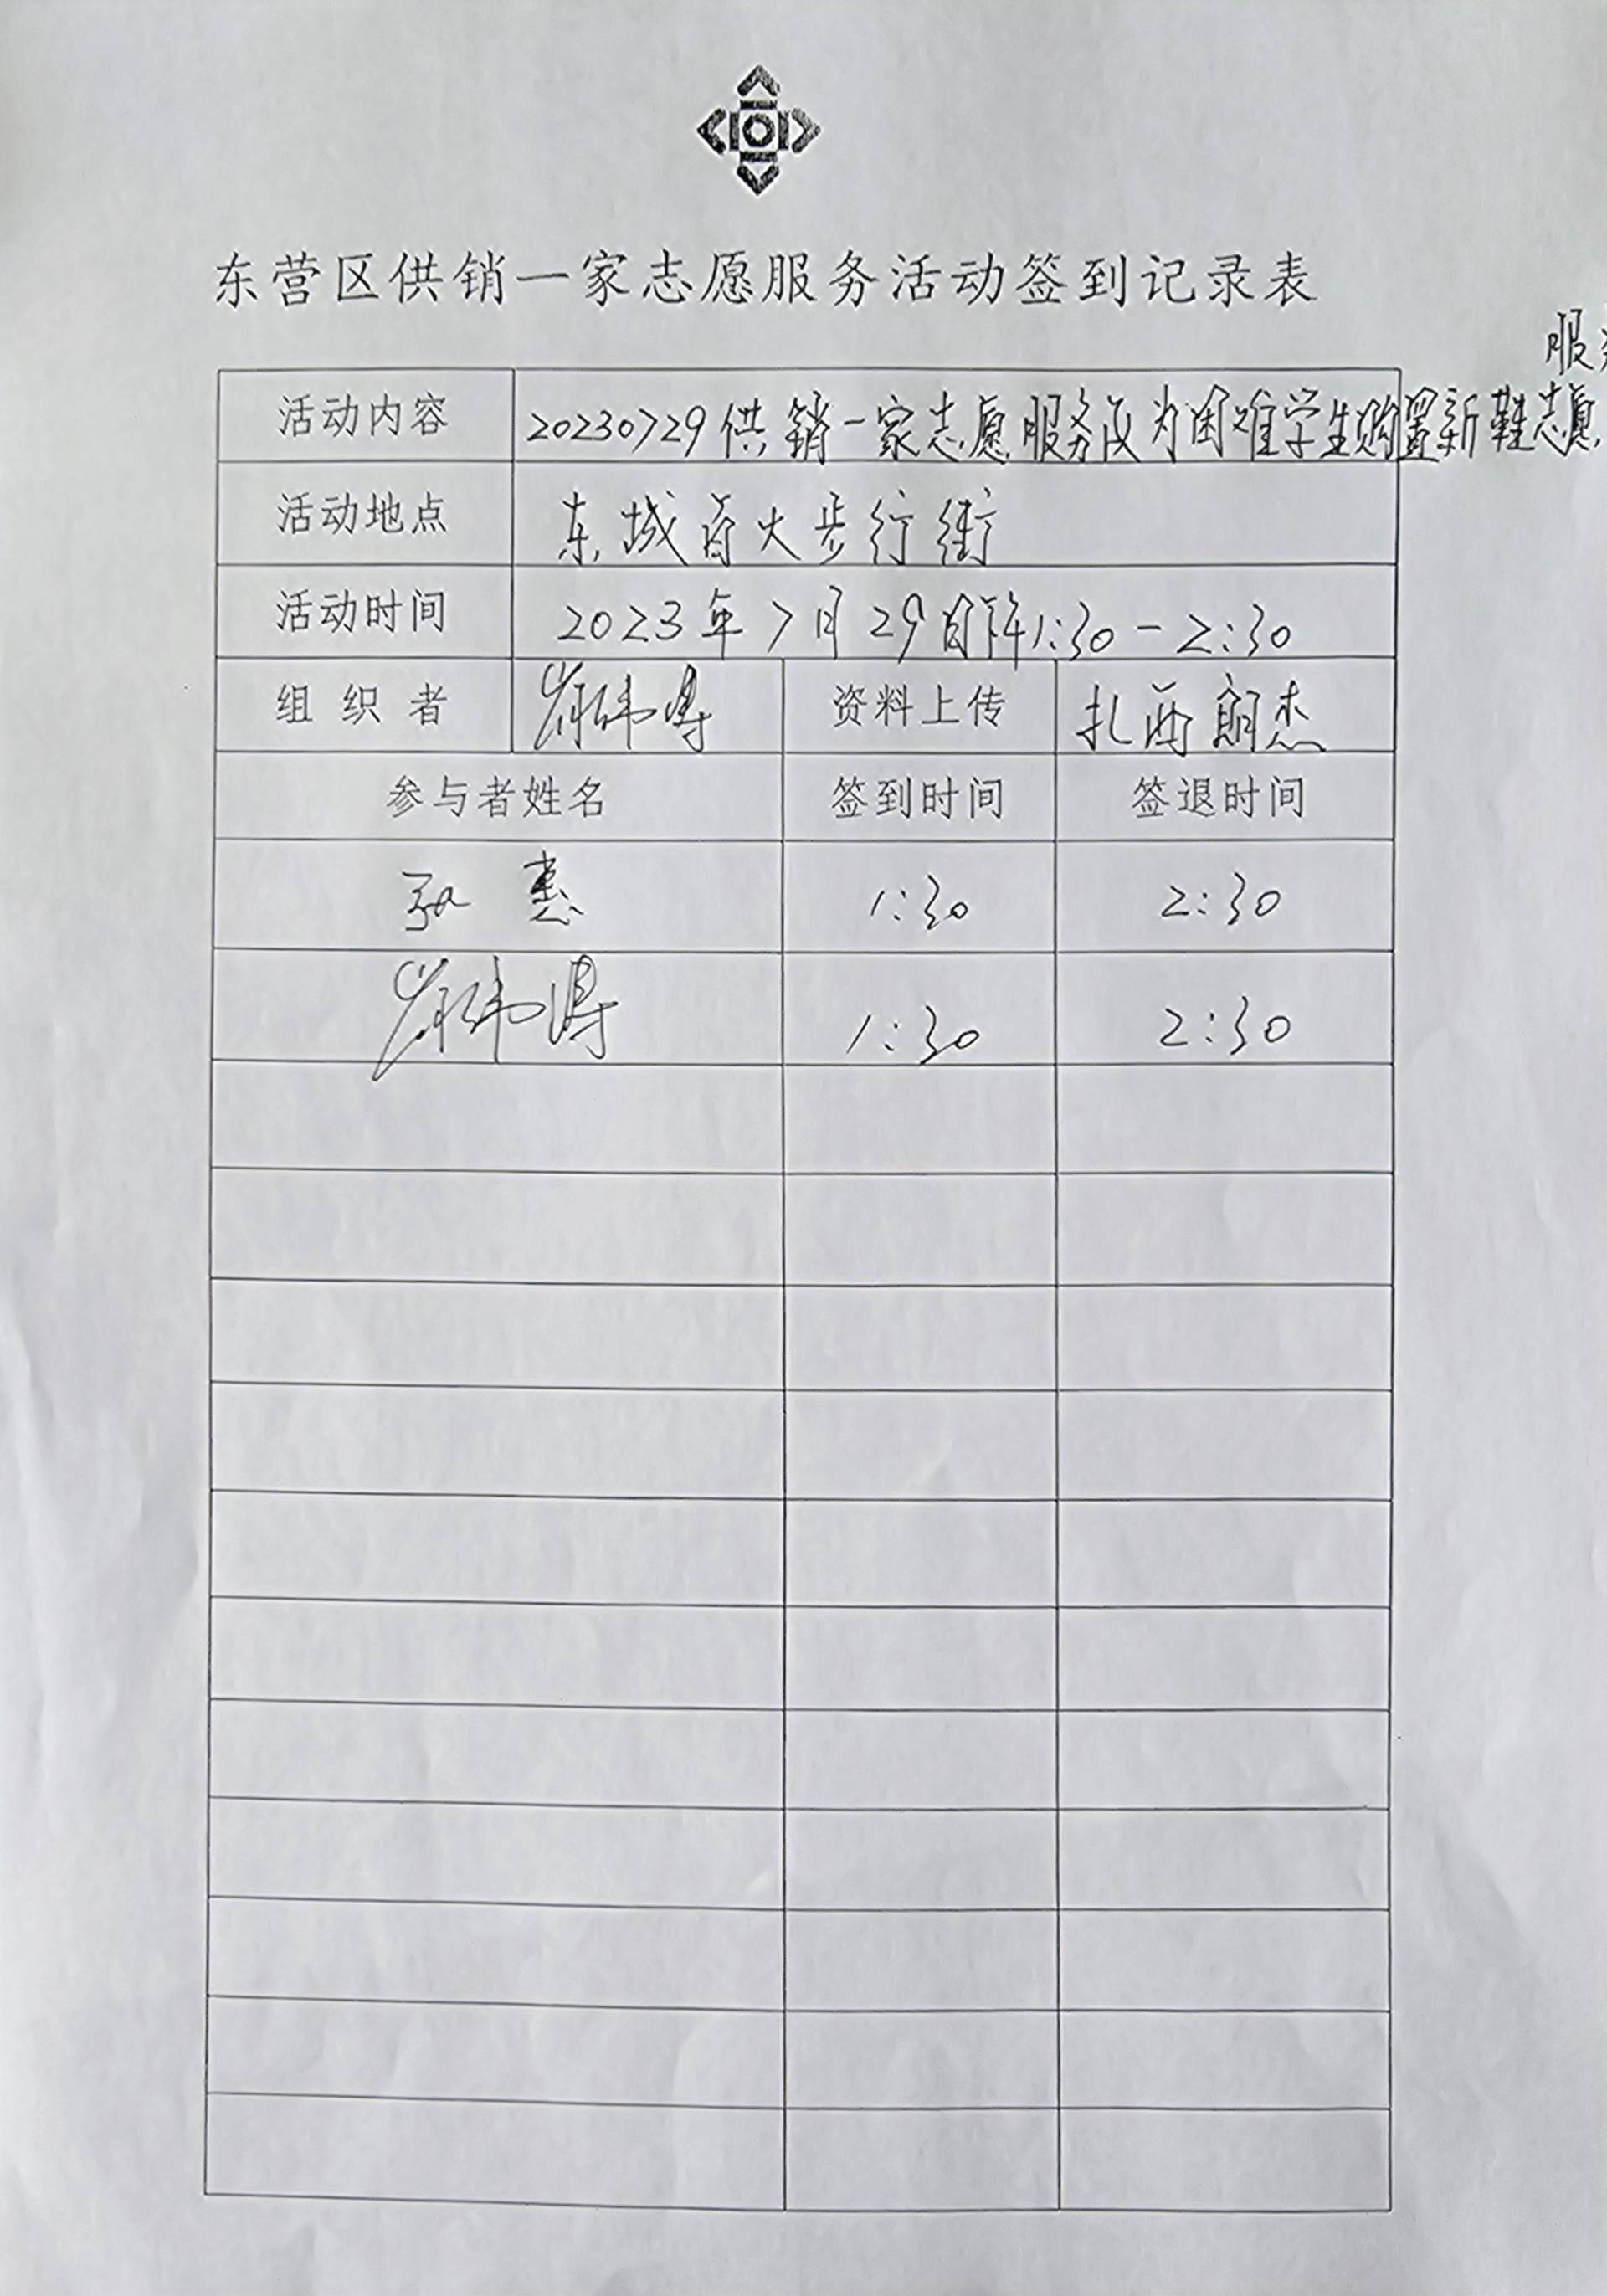 东营区供销一家志愿服务活动签到记录表
服
活动内容 20230729供销一家志愿服务队为困难学生购置新鞋志愿
活动地点 东城百大步行街
活动时间 2023年7月29日下午1:30-2:30
组织者 资料上传 扎西朗杰
参与者姓名 签到时间 签退时间
1:30 2:30
1:30 2:30